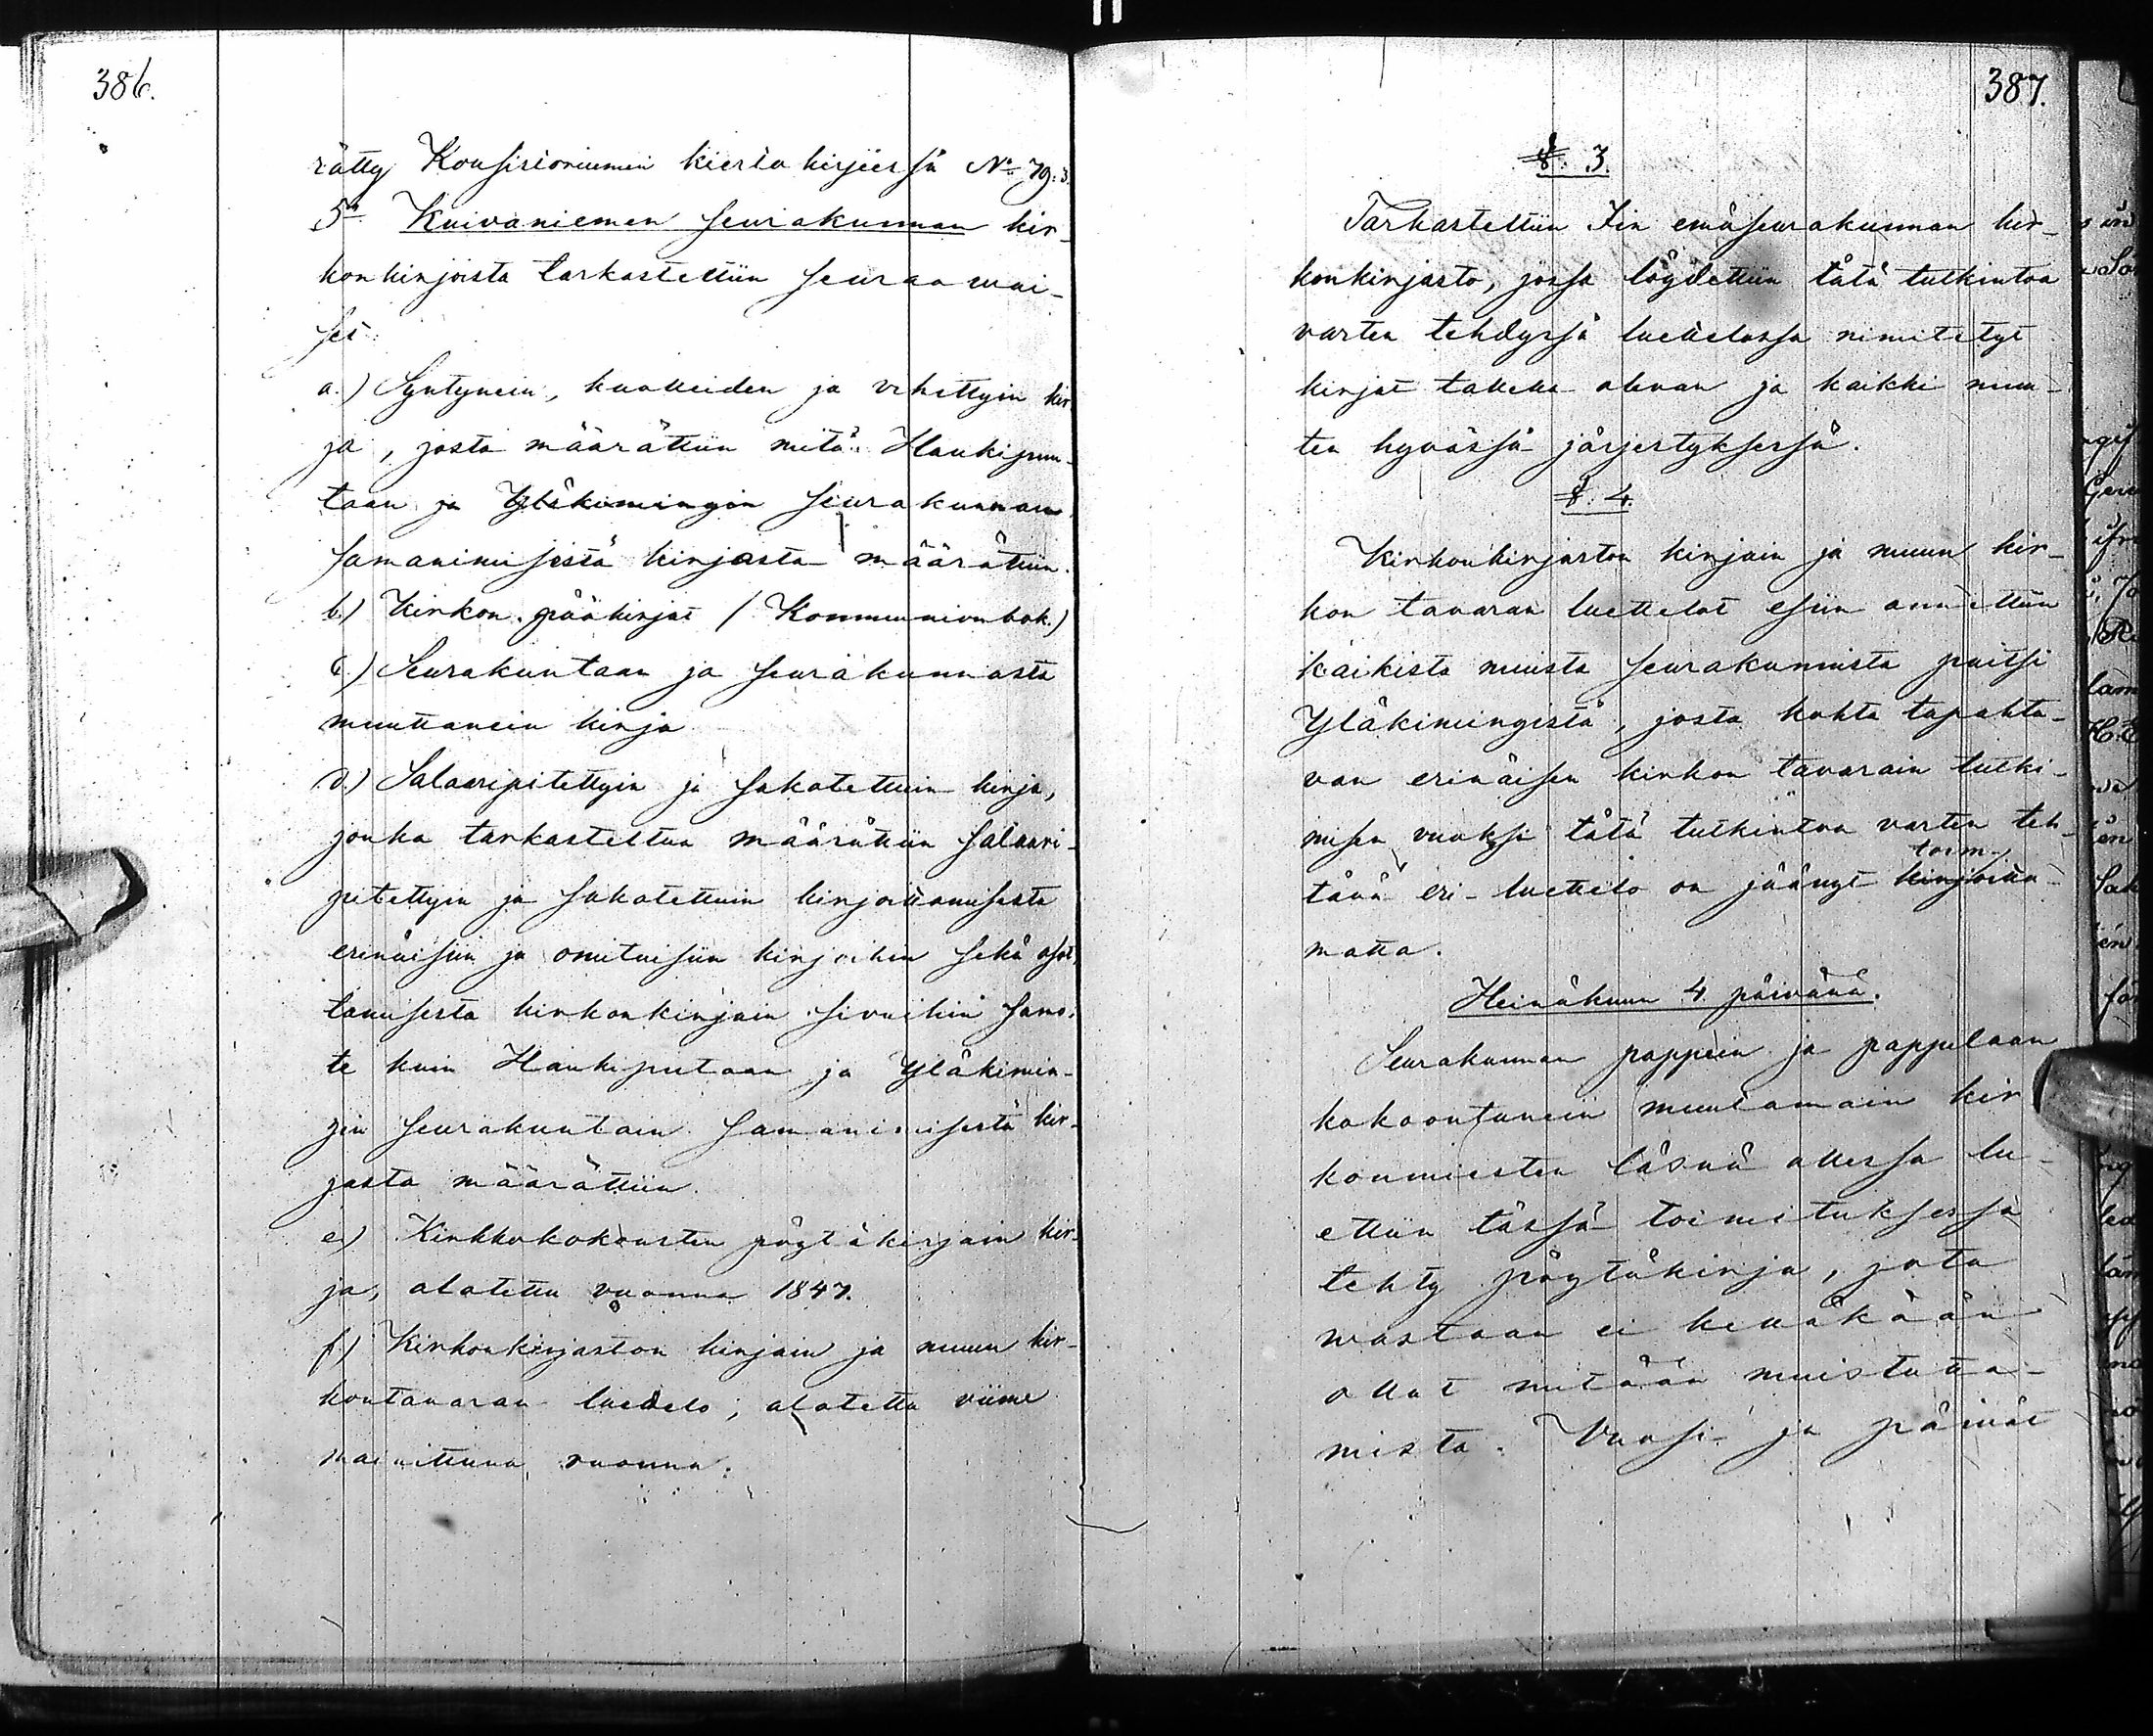 386.
rätty Konsistoriumin kiertokirjeessä No 79:3.
5o Kuivaniemen seurakunnan kir-
konkirjoista tarkastettiin seuraawai-
set:
a.) Syntynein, kuolleiden ja vihittyin kir
ja, josta määrättiin mitä Haukipuu-
taan ja Yläkiimingin seurakunnan
samanimisestä kirjasta määrättiin.
b.) Kirkon pääkirjat (Kommunionbok.)
c.) Seurakuntaan ja seurakunnasta
muuttanein kirja
d.) Salaaripitettyin ja sakotettuin kirja,
jonka tarkastettua määrättiin salaari-
pitettyin ja sakotettuin kirjoittamisesta
erinäisiin ja omituisiin kirjoihin sekä osot-
tamisesta kirkonkirjain sivuihin samo-
te kuin Haukiputaan ja Yläkiimin-
gin seurakuntain samanimisestä kir-
jasta määrättiin.
e.) Kirkkokokousten pöytäkirjain kir-
ja, alotettu vuonna 1847.
f.) Kirkonkirjaston kirjain ja muun kir-
kontavaran luettelo, alotettu viime
mainittuna vuonna.
387.
§. 3.
Tarkastettiin Iin emäseurakunnan kir-
konkirjasto, jossa löydettiin tätä tutkintoa
varten tehdyssä luettelossa nimitetyt
kirjat tallella olevan ja kaikki muu-
ten hyvässä järjestyksessä.
§. 4.
Kirkonkirjaston kirjain ja muun kir-
kon tavaran luettelot esiin annettiin
kaikista muista seurakunnista paitsi
Yläkiimingistä, josta kohta tapahtu-
van erinäisen kirkon tavarain tutki-
misen vuoksi tätä tutkintoa varten teh-
toim-
tävä eri-luettelo on jäänyt kirjoitta-
matta.
Heinäkuun 4 päivänä.
Seurakunnan pappein ja pappilaan
kokoontunein muutamain kir
konmiesten läsnä ollessa lu-
ettiin tässä toimituksessa
tehty pöytäkirja, jota
wastaan ei kelläkään
ollut mitään muistutta-
mista. Vuosi ja päivät